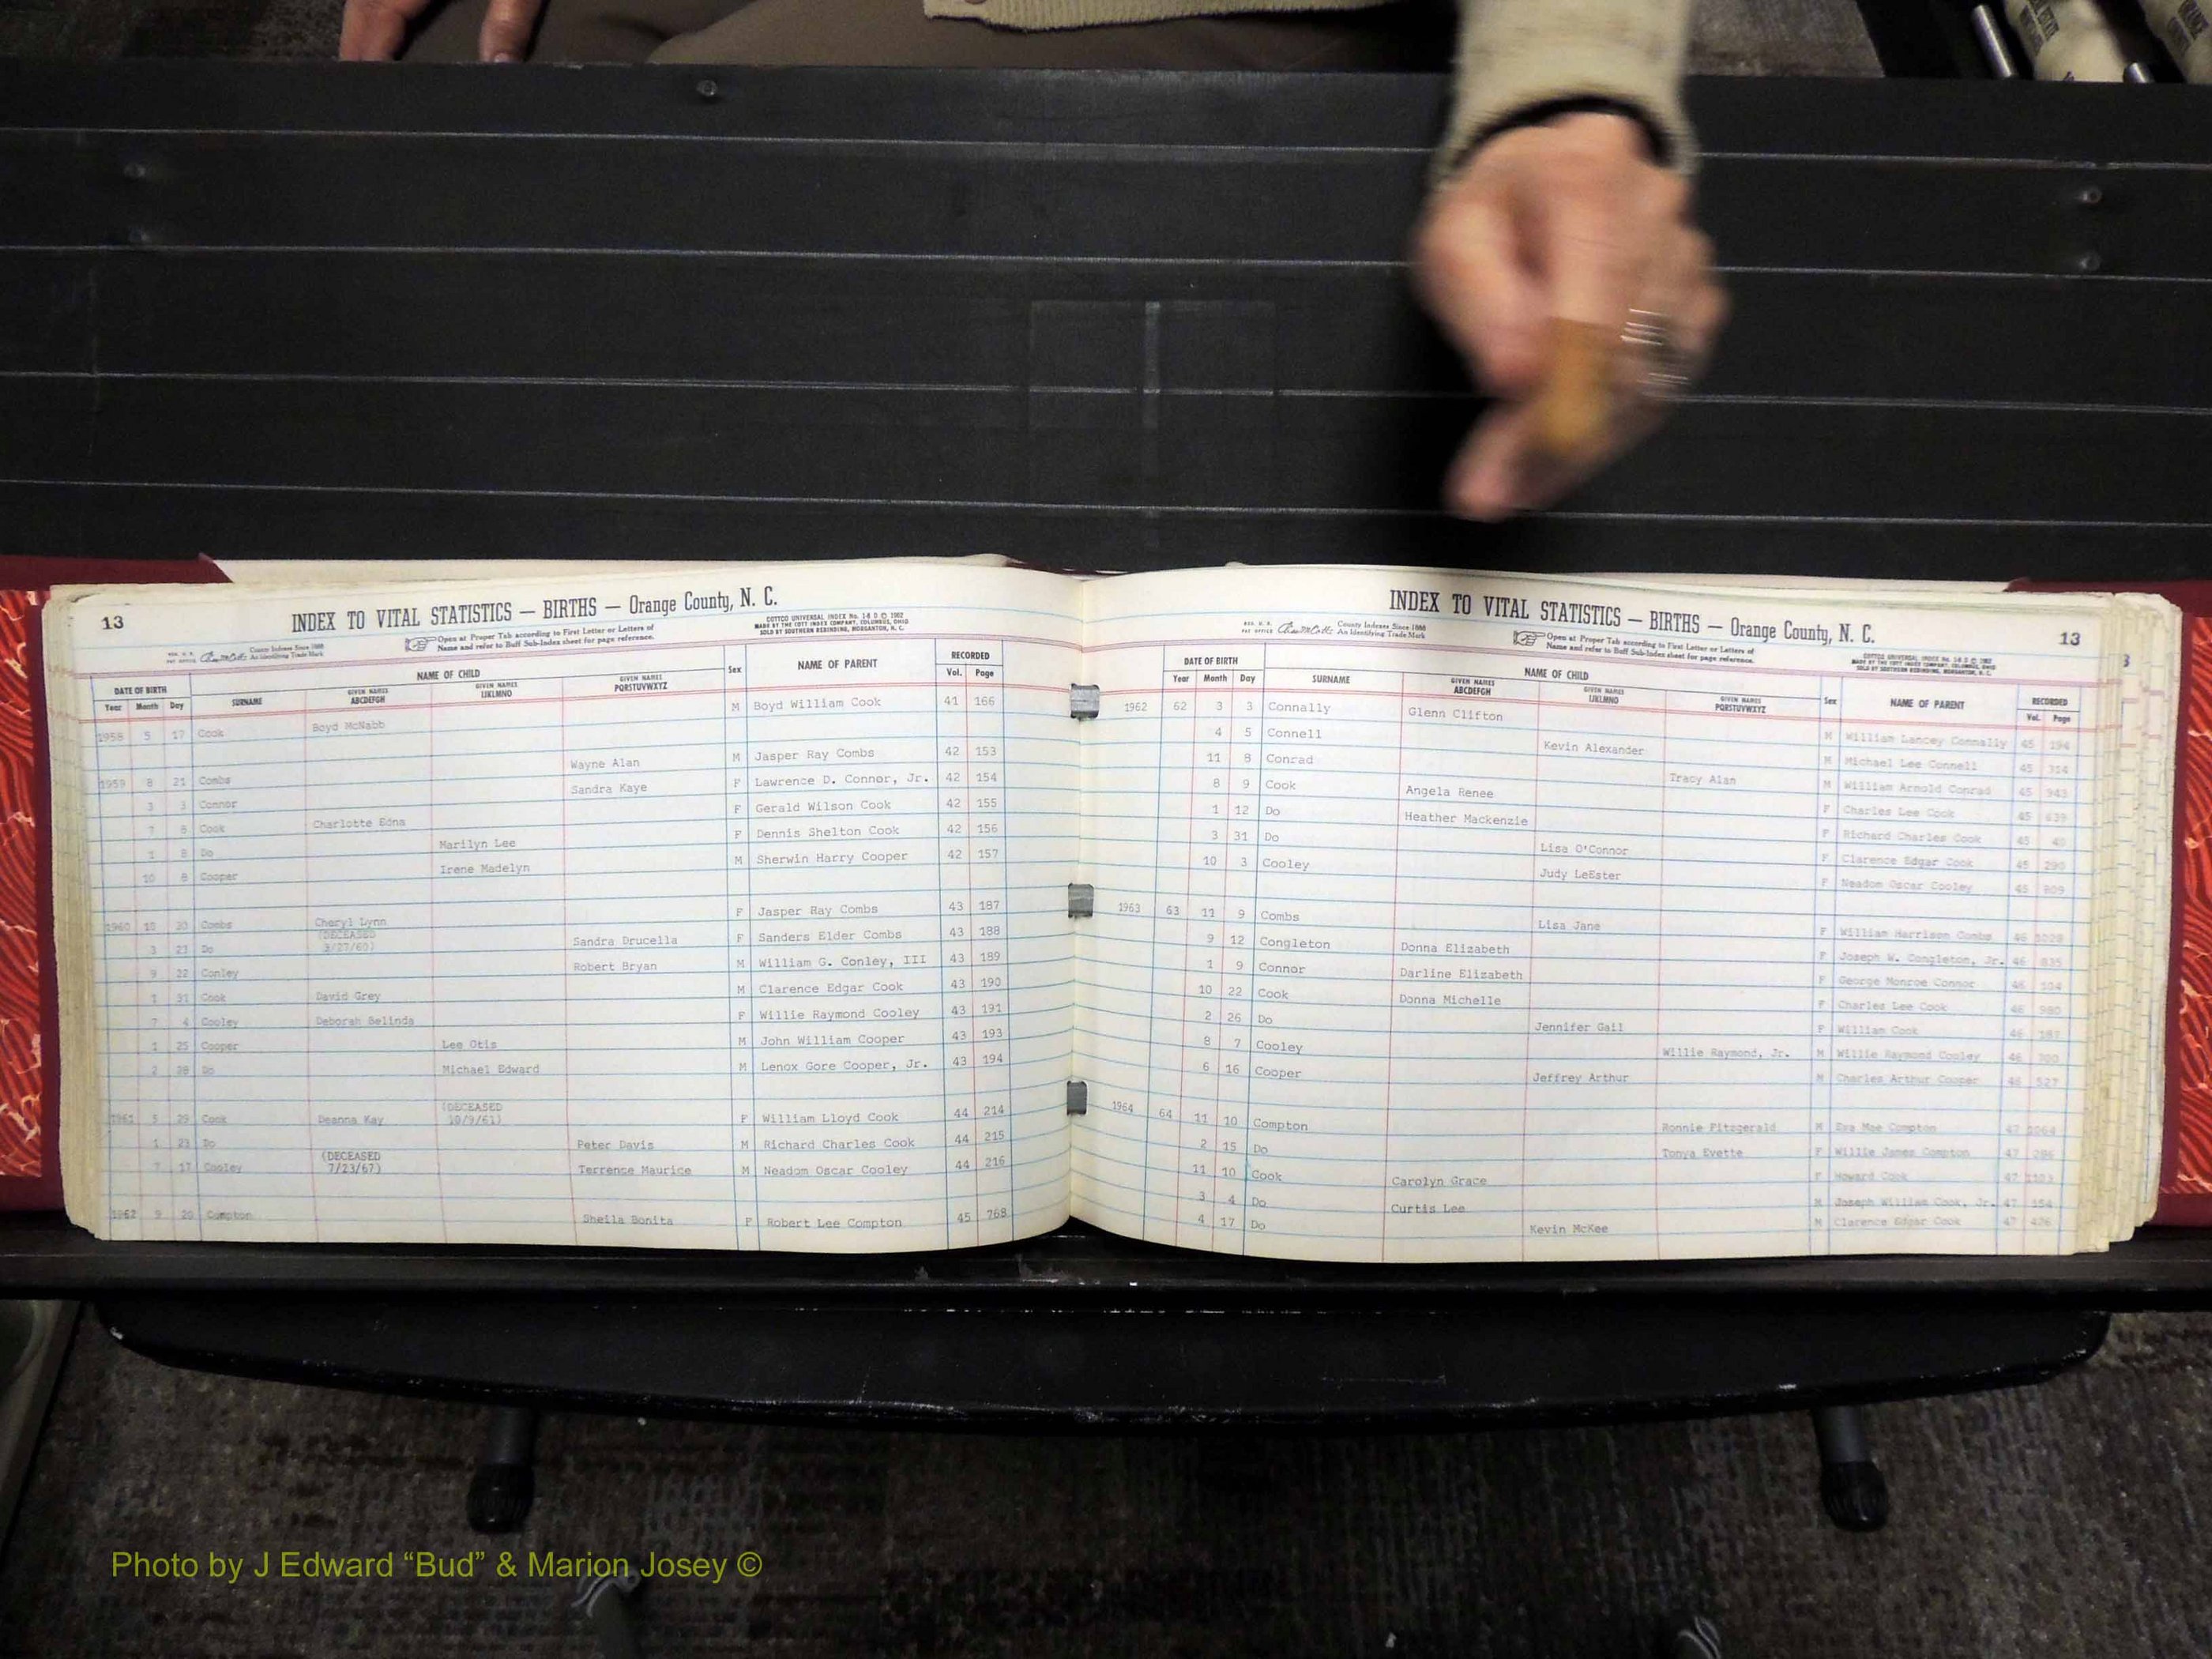 13
INDEX TO VITAL STATISTICS — BIRTHS — Orange County, N. C.
COTTCO UNIVERSAL INDEX No. 1-8 D © 1962
MADE BY THE COTT INDEX COMPANY, COLUMBUS, OHIO
SOLD BY SOUTHERN REBINDING, MORGANTON, N. C.
REG. U. S. PAT OFFICE County Indexes Since 1888
An Identifying Trade Mark
Open at Proper Tab according to First Letter or Letters of
Name and refer to Buff Sub-Index sheet for page reference.
DATE OF BIRTH NAME OF CHILD Sex NAME OF PARENT RECORDED
Year Month Day SURNAME GIVEN NAMES ABCDEFGH GIVEN NAMES IJKLMNO GIVEN NAMES PQRSTUVWXYZ Vol. Page
1958 5 17 Cook Boyd McNabb M Boyd William Cook 41 166
1959 8 21 Combs Wayne Alan M Jasper Ray Combs 42 153
3 3 Connor Sandra Kaye F Lawrence D. Connor, Jr. 42 154
7 8 Cook Charlotte Edna F Gerald Wilson Cook 42 155
1 8 Do Marilyn Lee F Dennis Shelton Cook 42 156
10 8 Cooper Irene Madelyn M Sherwin Harry Cooper 42 157
1960 10 20 Combs Cheryl Lynn F Jasper Ray Combs 43 187
3 23 Do (DECEASED 3/27/60) Sandra Drucella F Sanders Elder Combs 43 188
9 22 Conley Robert Bryan M William G. Conley, III 43 189
1 31 Cook David Grey M Clarence Edgar Cook 43 190
7 4 Cooley Deborah Belinda F Willie Raymond Cooley 43 191
1 25 Cooper Lee Otis M John William Cooper 43 193
2 28 Do Michael Edward M Lenox Gore Cooper, Jr. 43 194
1961 5 29 Cook Deanna Kay (DECEASED 10/9/61) F William Lloyd Cook 44 214
1 23 Do Peter Davis M Richard Charles Cook 44 215
7 17 Cooley (DECEASED 7/23/67) Terrence Maurice M Neadom Oscar Cooley 44 216
1962 9 20 Compton Sheila Bonita F Robert Lee Compton 45 768
INDEX TO VITAL STATISTICS — BIRTHS — Orange County, N. C.
13
REG. U. S. PAT OFFICE County Indexes Since 1888
An Identifying Trade Mark
Open at Proper Tab according to First Letter or Letters of
Name and refer to Buff Sub-Index sheet for page reference.
COTTCO UNIVERSAL INDEX No. 1-8 D © 1962
MADE BY THE COTT INDEX COMPANY, COLUMBUS, OHIO
SOLD BY SOUTHERN REBINDING, MORGANTON, N. C.
DATE OF BIRTH NAME OF CHILD Sex NAME OF PARENT RECORDED
Year Month Day SURNAME GIVEN NAMES ABCDEFGH GIVEN NAMES IJKLMNO GIVEN NAMES PQRSTUVWXYZ Vol. Page
1962 62 3 3 Connally Glenn Clifton M William Lancey Connally 45 194
4 5 Connell Kevin Alexander M Michael Lee Connell 45 304
11 8 Conrad Tracy Alan M William Arnold Conrad 45 943
8 9 Cook Angela Renee F Charles Lee Cook 45 639
1 12 Do Heather Mackenzie F Richard Charles Cook 45 40
3 31 Do Lisa O'Connor F Clarence Edgar Cook 45 290
10 3 Cooley Judy LeEster F Neadom Oscar Cooley 45 809
1963 63 11 9 Combs Lisa Jane F William Harrison Combs 46 1028
9 12 Congleton Donna Elizabeth F Joseph W. Congleton, Jr. 46 835
1 9 Connor Darline Elizabeth F George Monroe Connor 46 104
10 22 Cook Donna Michelle F Charles Lee Cook 46 980
2 26 Do Jennifer Gail F William Cook 46 187
8 7 Cooley Willie Raymond, Jr. M Willie Raymond Cooley 46 700
6 16 Cooper Jeffrey Arthur M Charles Arthur Cooper 46 527
1964 64 11 10 Compton Ronnie Fitzgerald M Eva Mae Compton 47 1064
2 15 Do Tonya Evette F Willie James Compton 47 286
11 10 Cook Carolyn Grace F Howard Cook 47 1103
3 4 Do Curtis Lee M Joseph William Cook, Jr. 47 354
4 17 Do Kevin McKee M Clarence Edgar Cook 47 426
Photo by J Edward “Bud” & Marion Josey ©